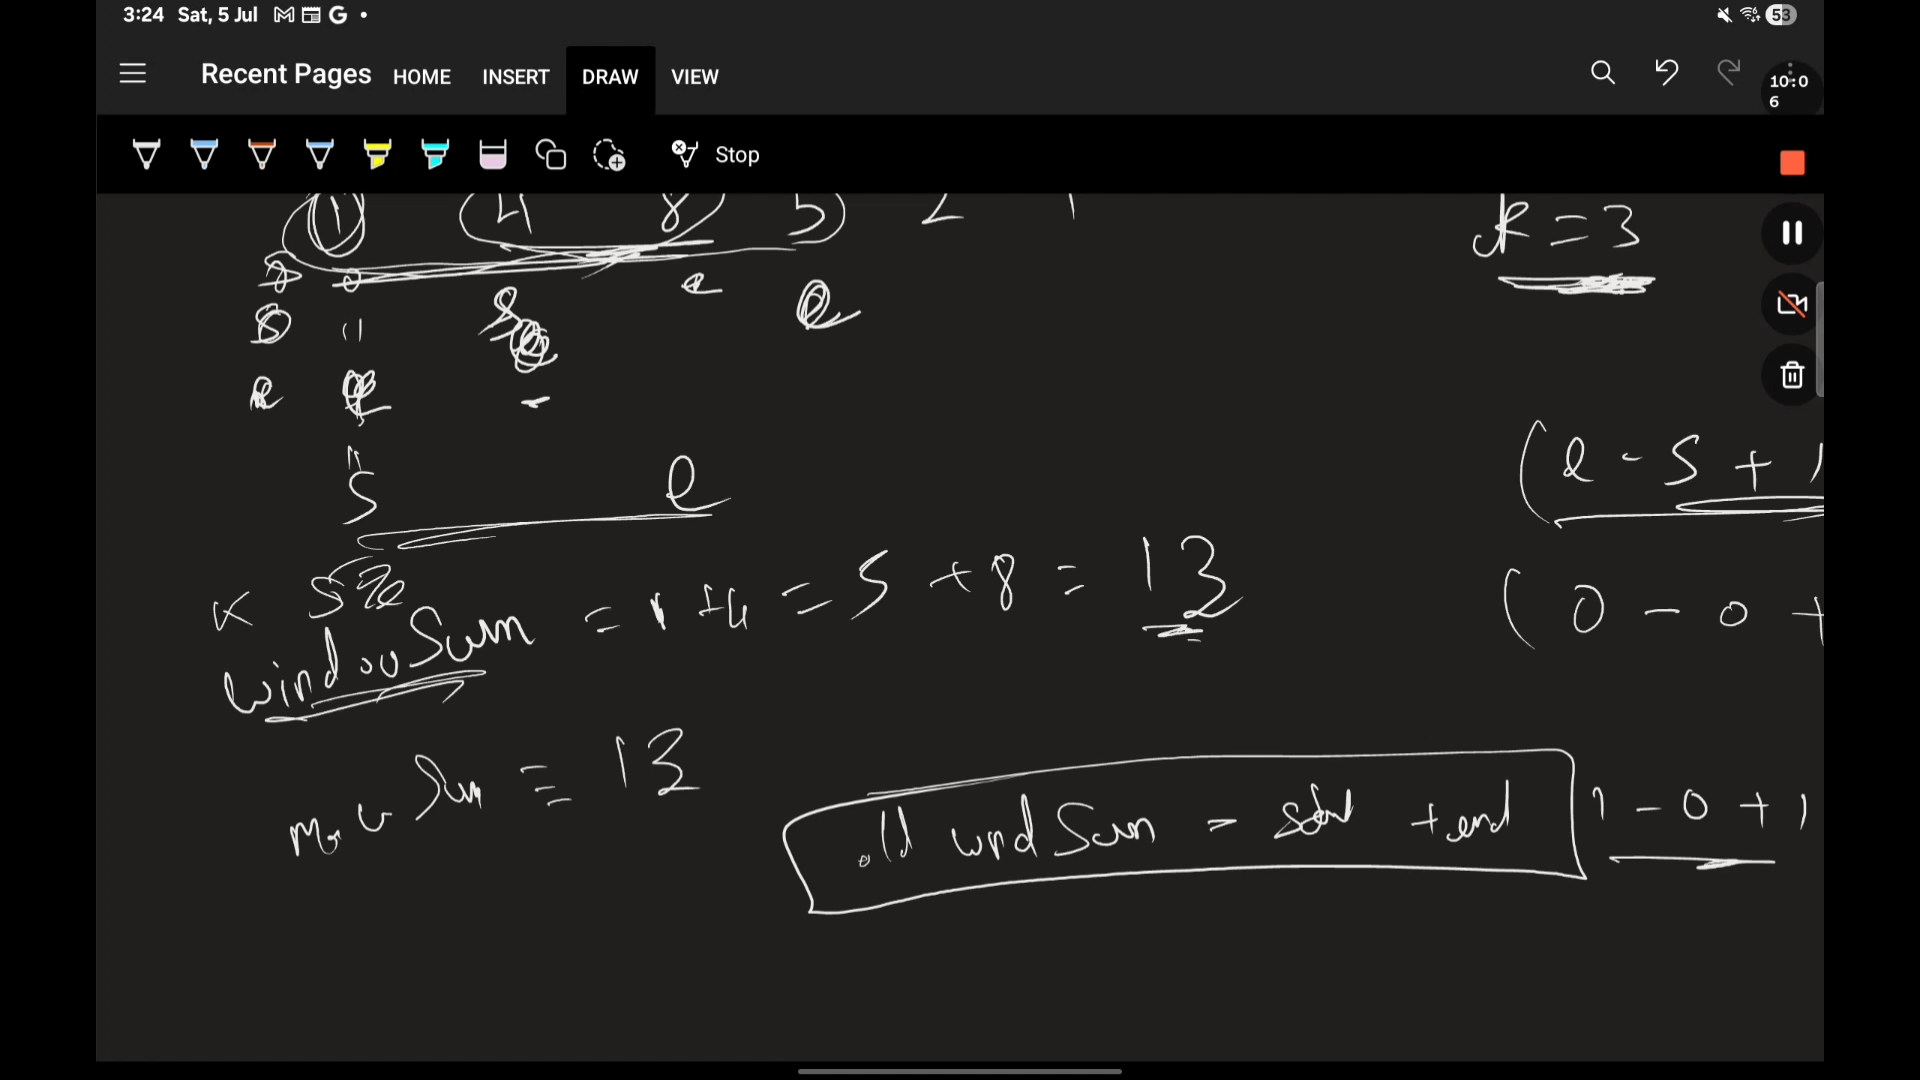 3:24 Sat, 5 Jul 53
Recent Pages HOME INSERT DRAW VIEW
10:0
6
Stop
1 4 8 5 2 1
k = 3
s 0 e e
s "
e e
s e
(e - s + 1
k size
windowSum = 1 + 4 = 5 + 8 = 13
(0 - 0 +
max Sum = 13
old wind Sum - start + end
1 - 0 + 1